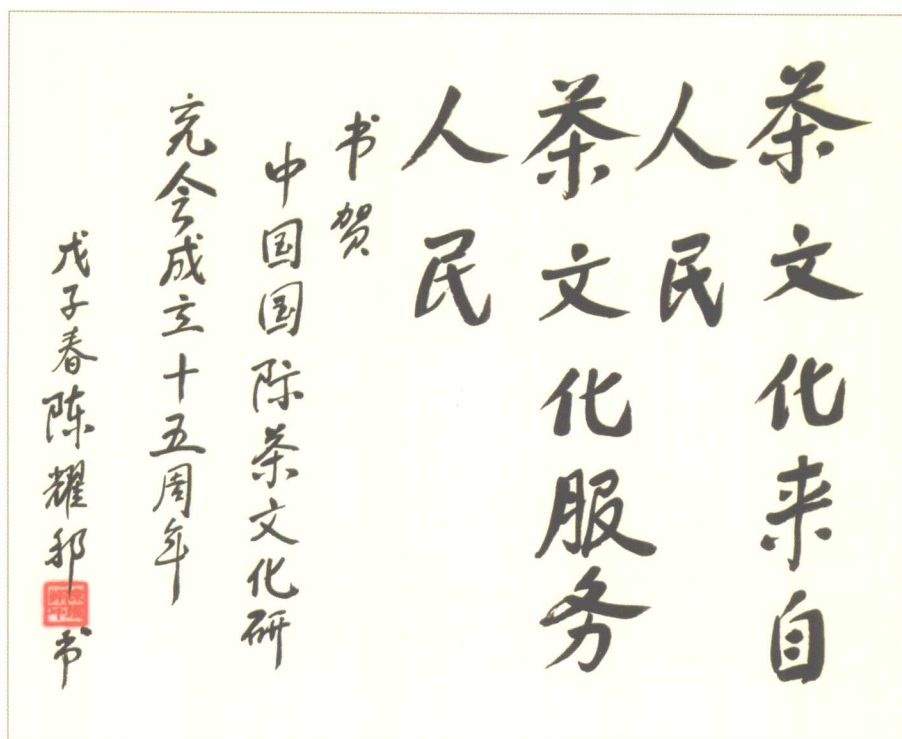 茶文化来自
人民
茶文化服务
人民
书贺
中国国际茶文化研
究会成立十五周年
戊子春陈耀邦书